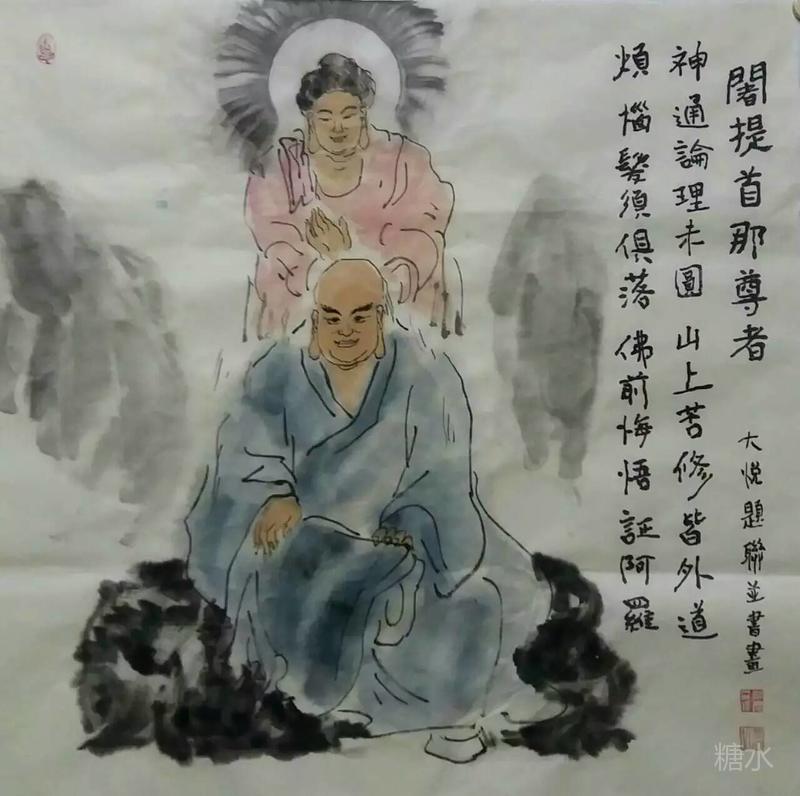 闍提首那尊者
大悅題聯並書畫
神通論理未圓 山上苦修皆外道
煩惱鬘須俱落 佛前悔悟証阿羅
糖水